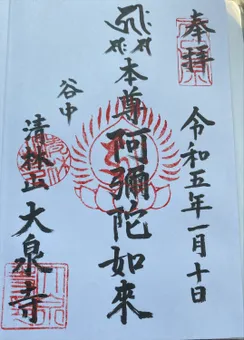 奉拝
令和五年一月十日
本尊阿彌陀如來
谷中
清林山
大泉寺